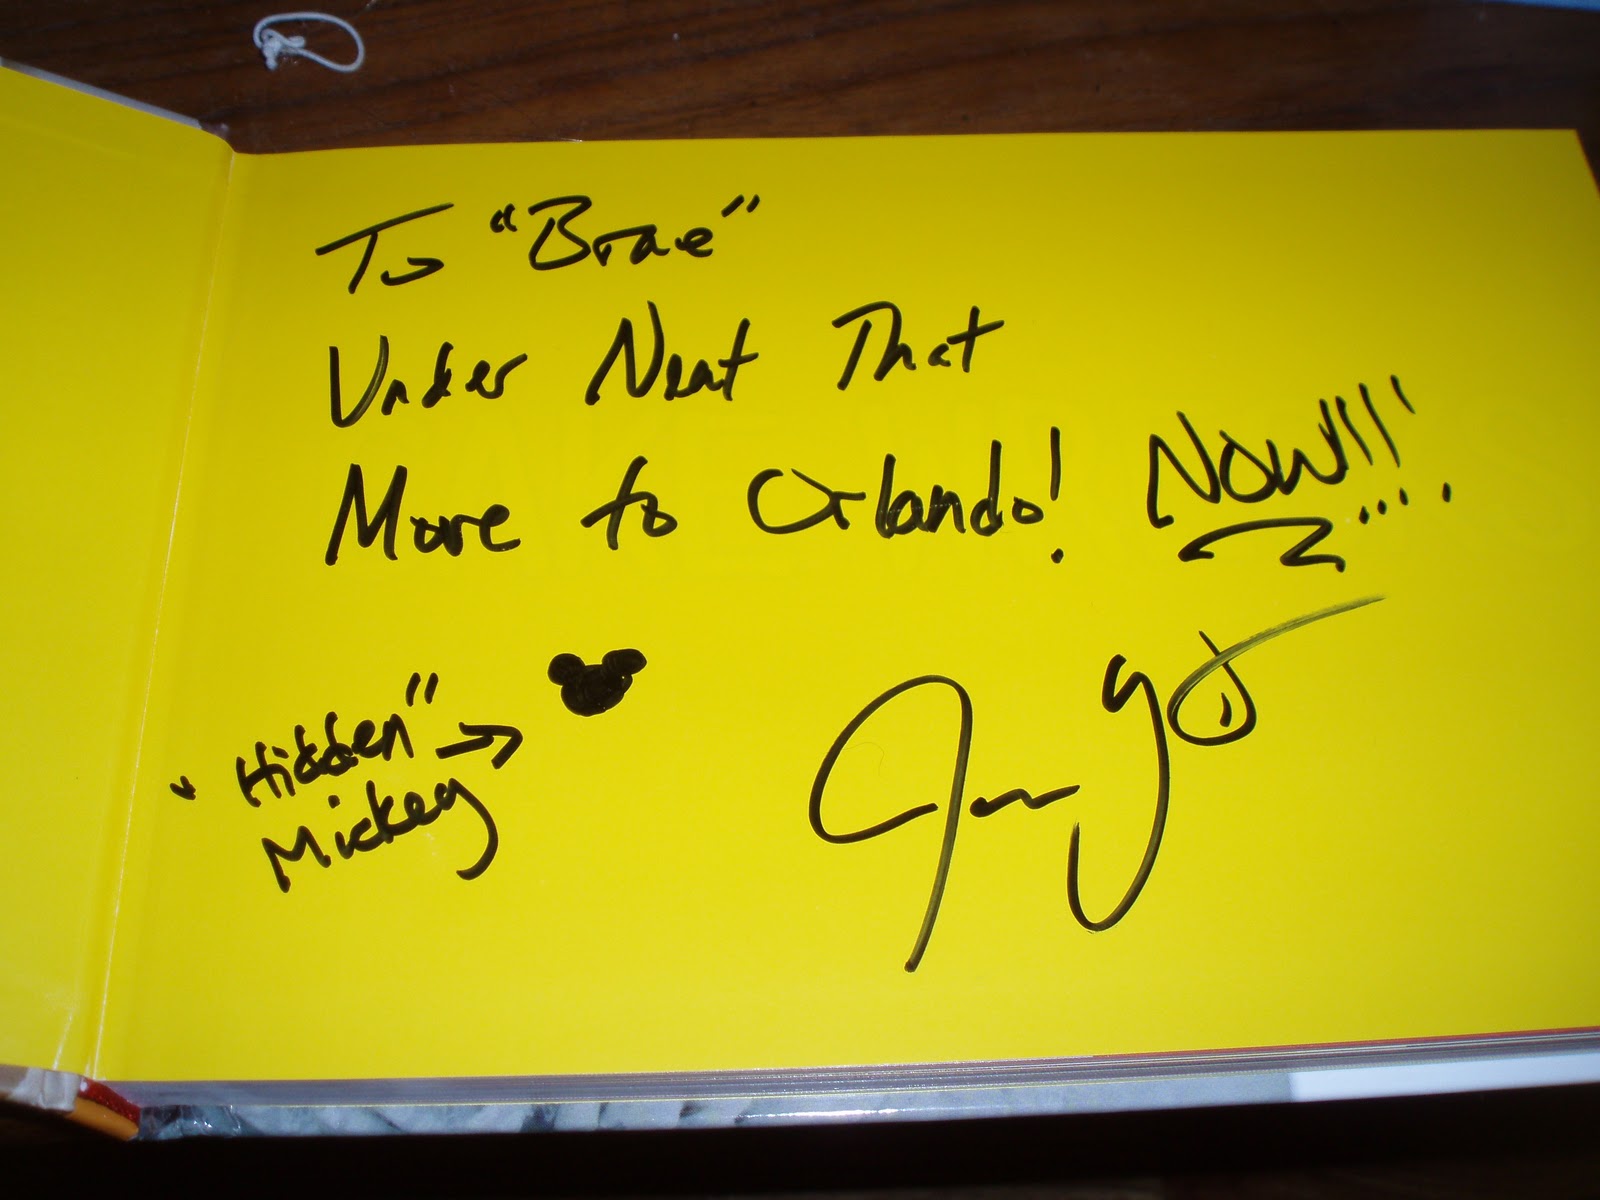 To "Brae"
Under Neat That
Move to Orlando! NOW!!!!
"Hidden" →
Mickey